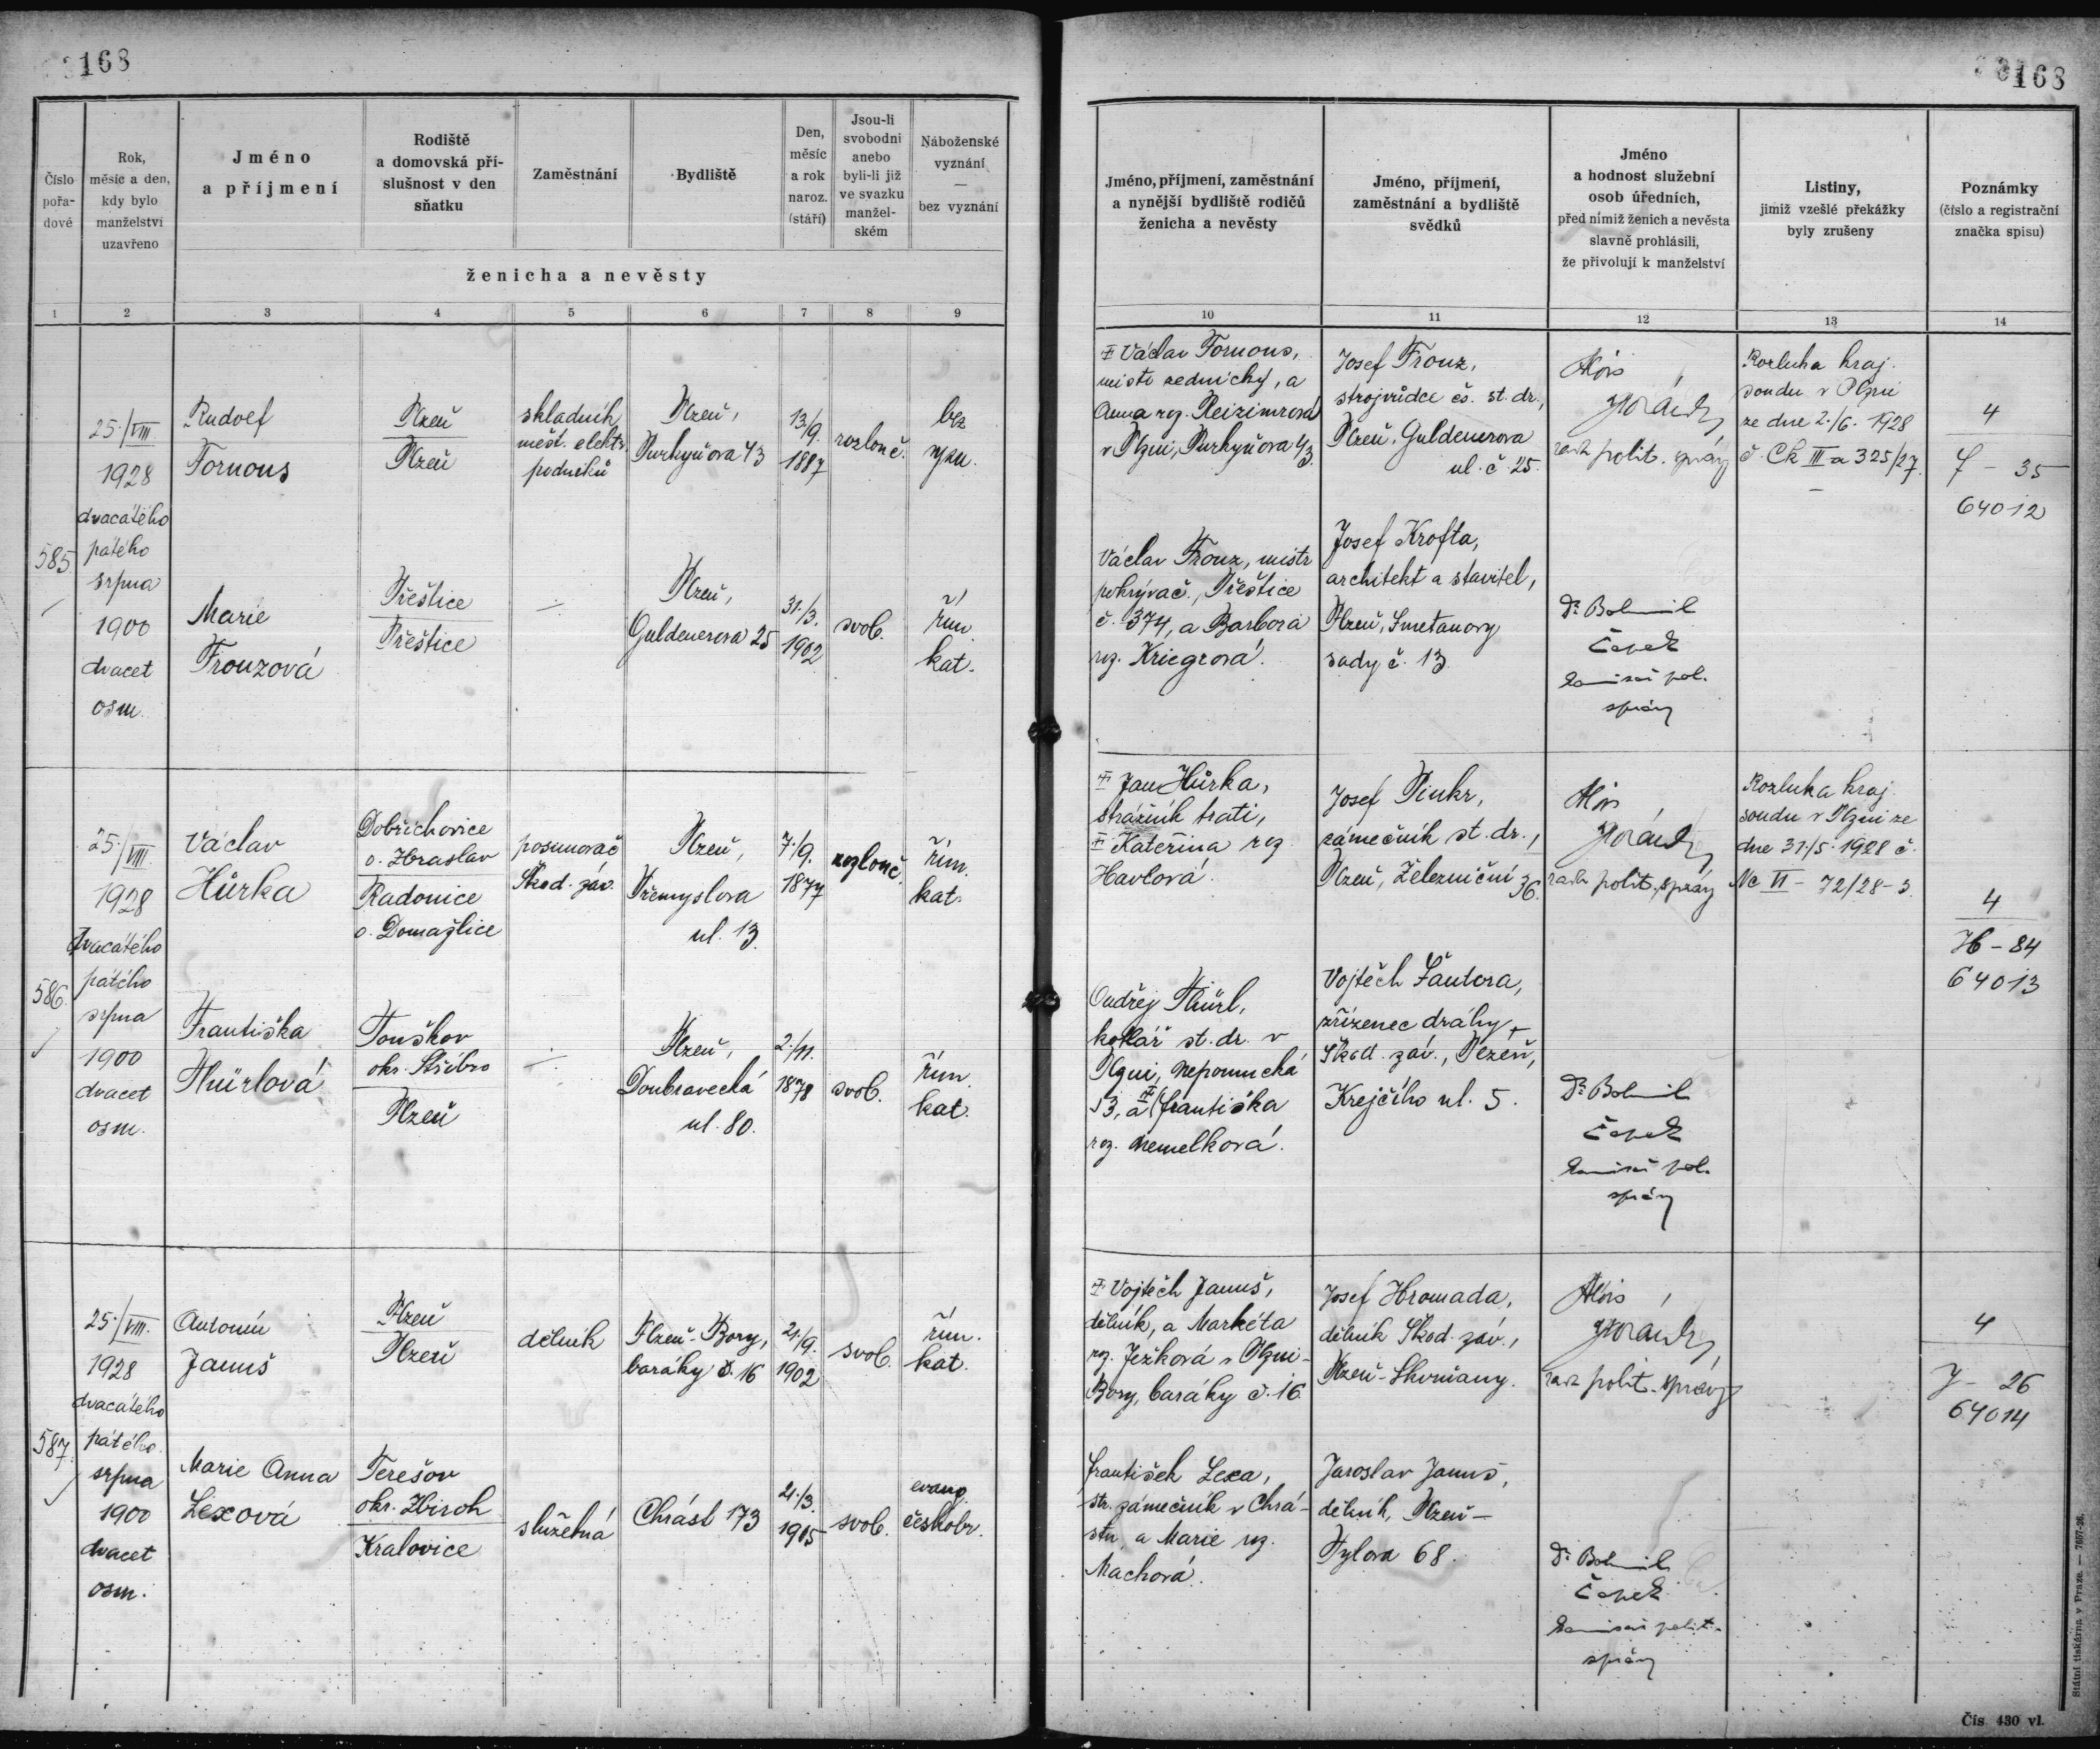 168
168
Číslo pořa- dové
Rok, měsíc a den, kdy bylo manželství uzavřeno
Jméno a příjmení
Rodiště a domovská pří- slušnost v den sňatku
Zaměstnání
Bydliště
Den, měsíc a rok naroz. (stáří)
Jsou-li svobodni anebo byli-li již ve svazku manžel- ském
Náboženské vyznání — bez vyznání
ženicha a nevěsty
Jméno, příjmení, zaměstnání a nynější bydliště rodičů ženicha a nevěsty
Jméno, příjmení, zaměstnání a bydliště svědků
Jméno a hodnost služební osob úředních, před nimiž ženich a nevěsta slavně prohlásili, že přivolují k manželství
Listiny, jimiž vzešlé překážky byly zrušeny
Poznámky (číslo a registrační značka spisu)
1 2 3 4 5 6 7 8 9 10 11 12 13 14
585
25./VIII.
1928
dvacátého
pátého
srpna
1900
dvacet
osm.
Rudolf
Fornous
Plzeň
Plzeň
skladník
měst. elektr.
podniků
Plzeň,
Purkyňova 43
13/9.
1887
rozlouč.
bez
vyzn.
Václav Fornous,
mistr zednický, a
Anna roz.
v Plzni, Purkyňova 43.
Josef Frouz,
strojvůdce čs. st. dr.,
Plzeň, Guldenerova
ul. č. 25.
Alois
rada polit. správy
Rozluka kraj.
soudu v Plzni
ze dne 2./6. 1928
č. Ck III a 325/27.
4
F - 35
64012
Marie
Frouzová
Přeštice
Přeštice
Plzeň,
Guldenerova 25
31./3.
1902
svob.
řím.
kat.
Václav Frouz, mistr
pokrývač., Přeštice
č. 374, a Barbora
roz. Kriegrová.
Josef Krofta,
architekt a stavitel,
Plzeň, Smetanovy
sady č. 13.
Dr. Bohumil
Čapek
komisař pol.
správy
586.
25./VIII.
1928
dvacátého
pátého
srpna
1900
dvacet
osm.
Václav
Hůrka
Dobřichovice
o. Zbraslav
Radonice
o. Domažlice
posunovač
Škod. záv.
Plzeň,
Přemyslova
ul. 13.
7./9.
1877
rozlouč.
řím.
kat.
Jan Hůrka,
strážník trati,
Kateřina roz.
Havlová.
Josef Pinkr,
zámečník st. dr.,
Plzeň, Železniční 36.
Alois
rada polit. správy
Rozluka kraj.
soudu v Plzni ze
dne 31./5. 1928 č.
Nc VI - 72/28-3
4
H - 84
64013
Františka
Thürlová
Touškov
okr. Stříbro
Plzeň
Plzeň,
Doubravecká
ul. 80.
2./11.
1878
svob.
řím.
kat.
Ondřej Thürl,
kotlář st. dr. v
Plzni, Nepomucká
13, a Františka
roz. Nemelková.
Vojtěch Šautera,
zřízenec dráhy
Škod. záv., Plzeň,
Krejčího ul. 5.
Dr. Bohumil
Čapek
komisař pol.
správy
587.
25./VIII.
1928
dvacátého
pátého
srpna
1900
dvacet
osm.
Antonín
Januš
Plzeň
Plzeň
dělník
Plzeň-Bory,
baráky č. 16
21./9.
1902
svob.
řím.
kat.
Vojtěch Januš,
dělník, a Markéta
roz. Ježková v Plzni-
Bory, baráky č. 16
Josef Hromada,
dělník Škod. záv.,
Plzeň-Skvrňany.
Alois
rada polit. správy
4
J - 26
64014
Marie Anna
Lexová
Terešov
okr. Zbiroh
Kralovice
služebná
Chrást 173
21./3.
1905
svob.
evang.
českobr.
František Lexa,
str. zámečník v Chrá-
stu, a Marie roz.
Machová.
Jaroslav Januš,
dělník, Plzeň-
Tylova 68.
Dr. Bohumil
Čapek
komisař polit.
správy
Státní tiskárna v Praze. — 7697-26.
Čís 430 vl.